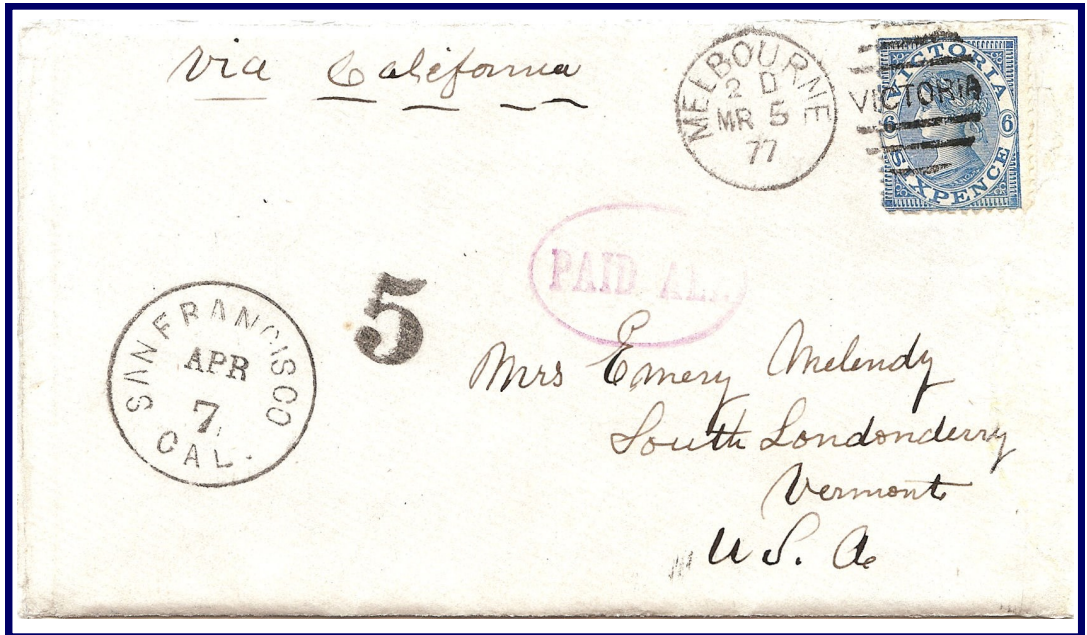 Via California
MELBOURNE
2 D
MR 5
77
VICTORIA
VICTORIA
6 6
SIX PENCE
PAID ALL
5
SAN FRANCISCO
APR
7
CAL.
Mrs Emery Melendy
South Londonderry
Vermont
U. S. A.